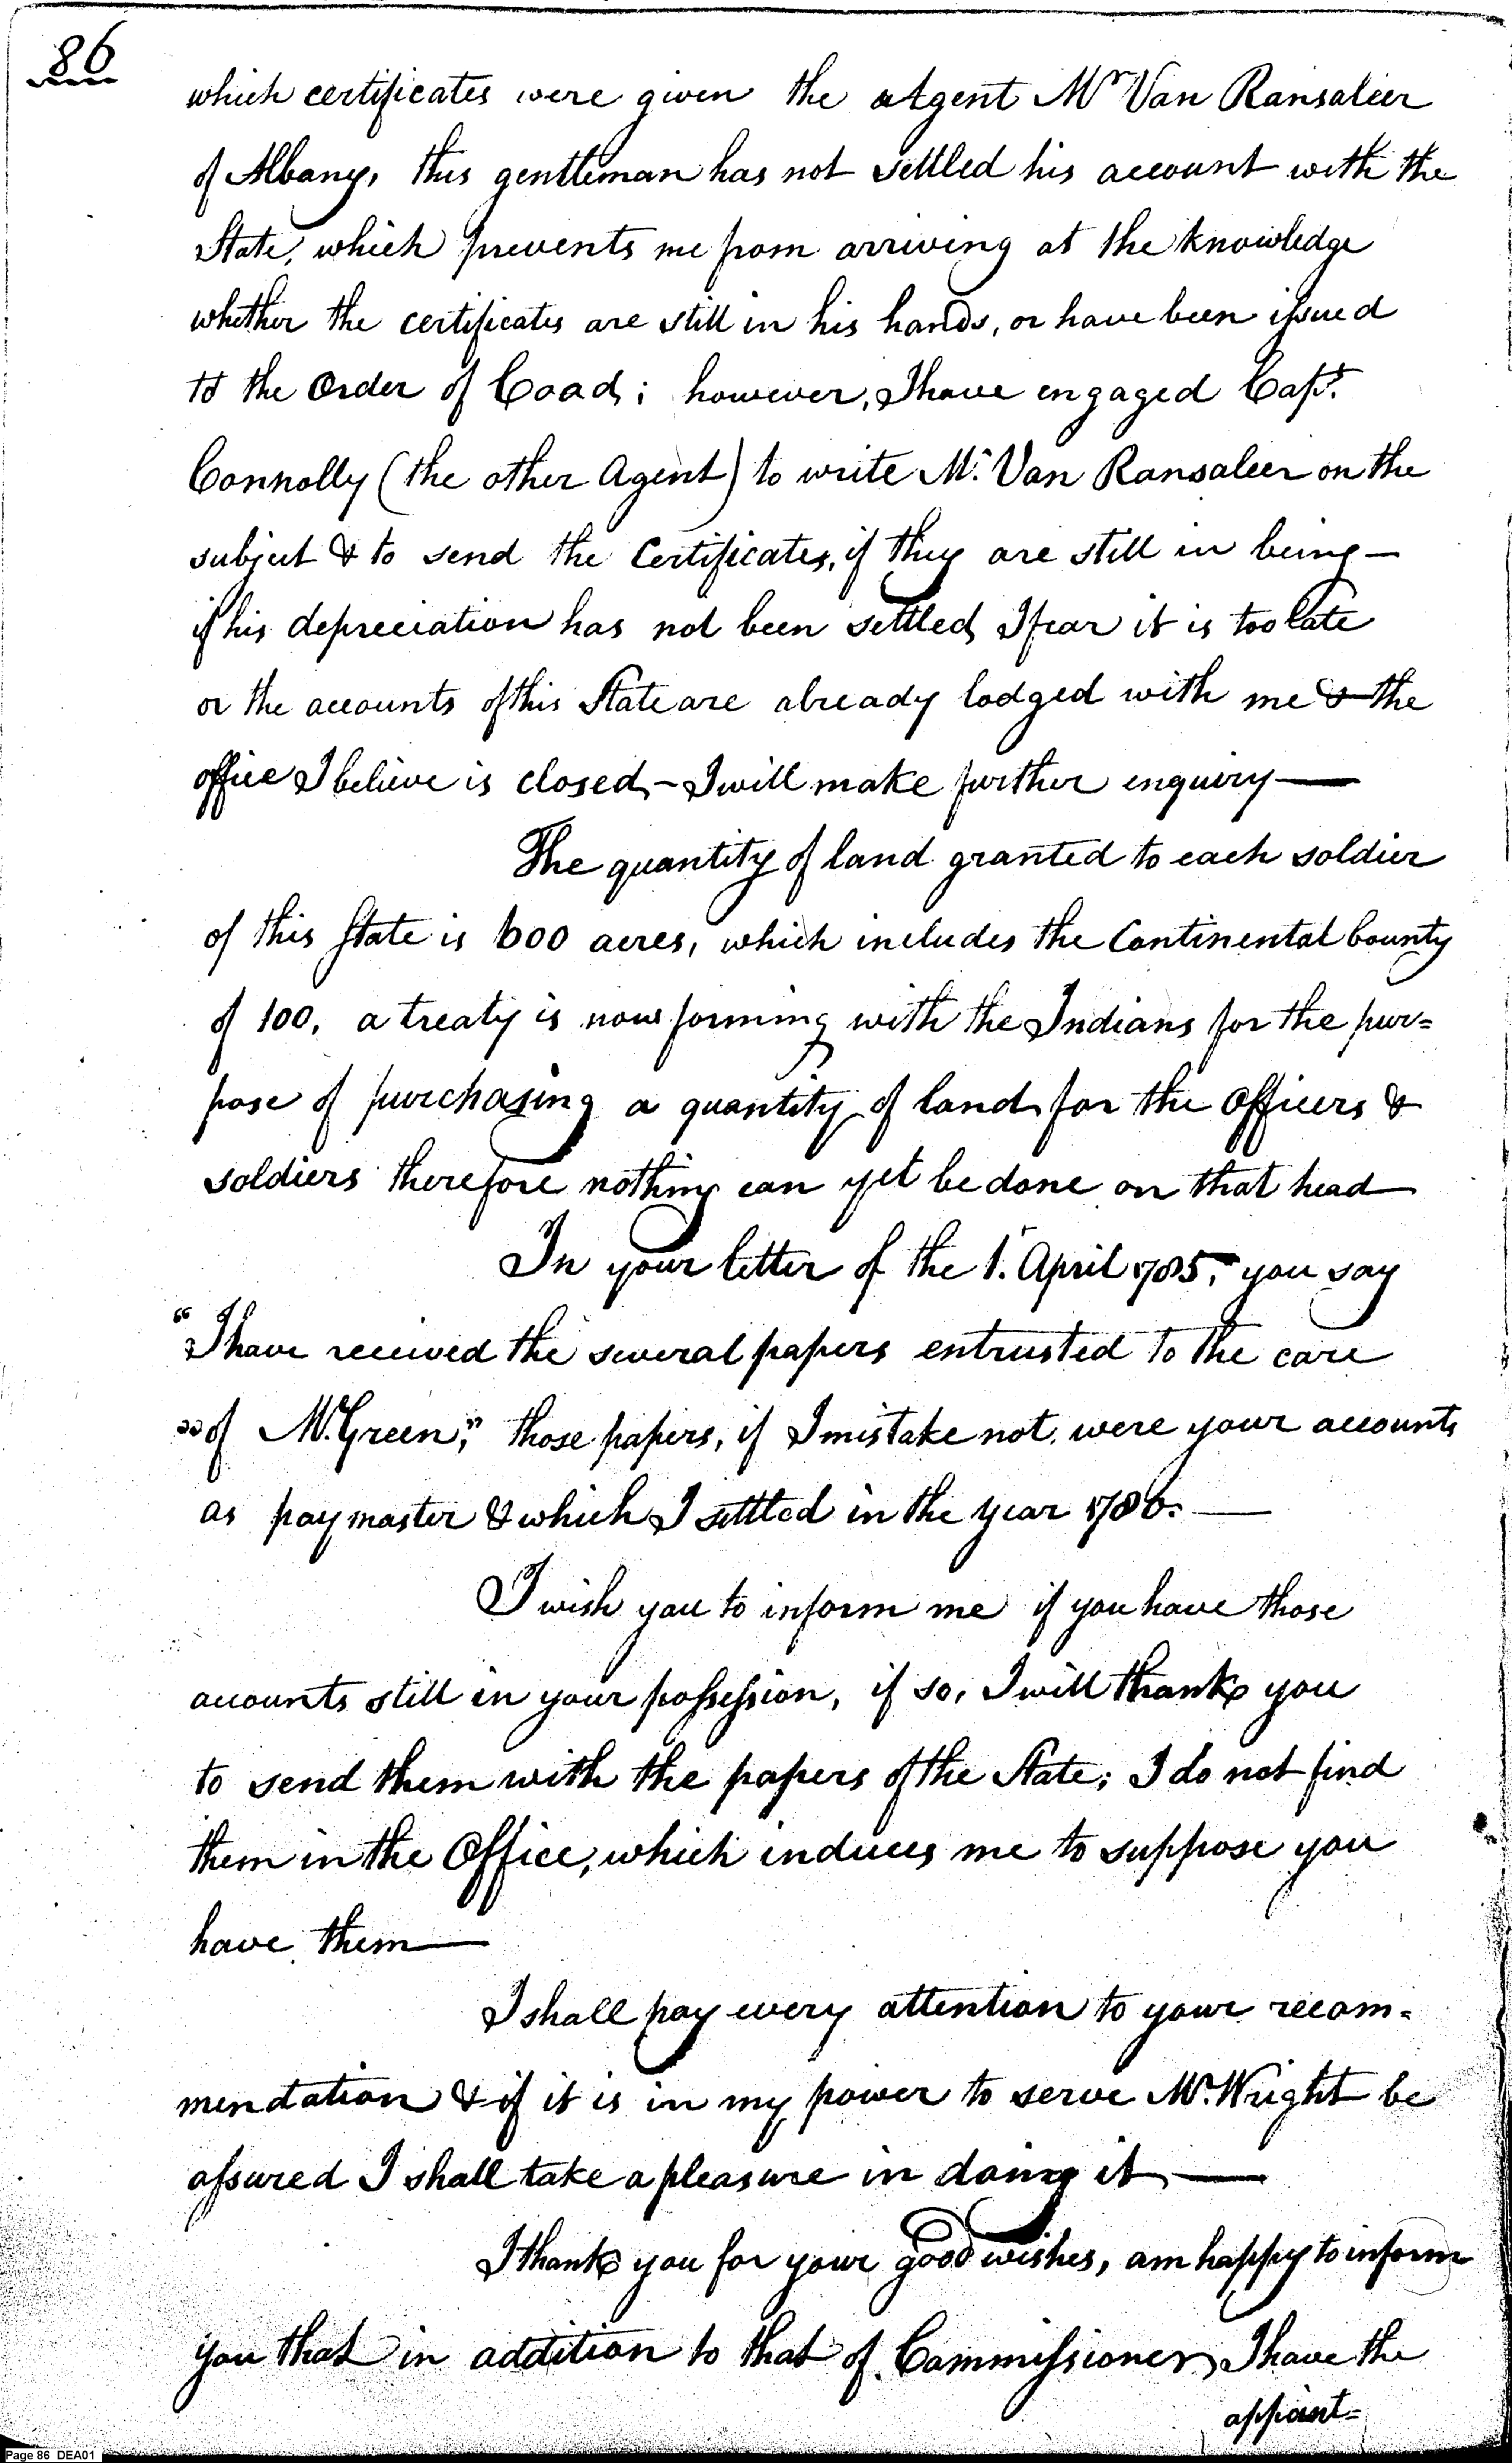 86
which certificates were given the Agent Mr Van Ransaleer
of Albany, this gentleman has not settled his account with the
State, which prevents me from arriving at the knowledge
whether the certificates are still in his hands, or have been issued
to the Order of Coad; however, I have engaged Capt.
Connolly (the other Agent) to write Mr. Van Ransaleer on the
subject & to send the Certificates, if they are still in being —
if his depreciation has not been settled, I fear it is too late
or the accounts of this State are already lodged with me & the
office I believe is closed, — I will make further enquiry —
The quantity of land granted to each soldier
of this State is 600 acres, which includes the Continental bounty
of 100, a treaty is now forming with the Indians for the pur=
pose of purchasing a quantity of land for the Officers &
soldiers therefore nothing can yet be done on that head
In your letter of the 1st. April 1785, you say
"I have received the several papers entrusted to the care
"of Mr. Green," those papers, if I mistake not, were your accounts
as paymaster & which I settled in the year 1786. —
I wish you to inform me if you have those
accounts still in your possession, if so, I will thank you
to send them with the papers of the State; I do not find
them in the Office, which induces me to suppose you
have them —
I shall pay every attention to your recom=
mendation & if it is in my power to serve Mr. Wright be
assured I shall take a pleasure in doing it —
I thank you for your good wishes, am happy to inform
you that in addition to that of Commissioner, I have the
appoint=
Page 86 DEA01